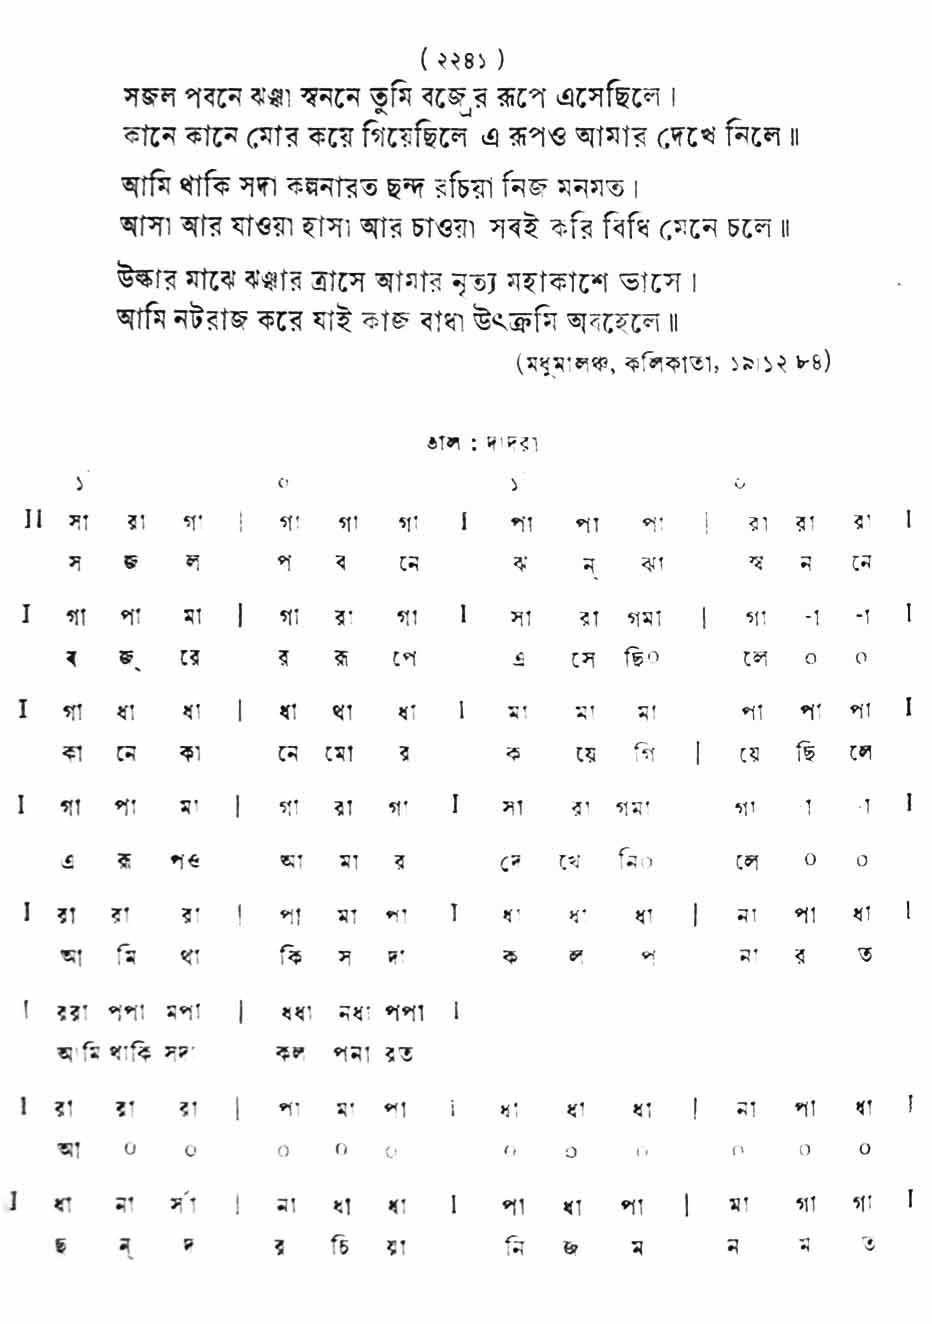 ( ২২৪১ )
সজল পবনে ঝঞ্ঝা স্বননে তুমি বজ্রের রূপে এসেছিলে ।
কানে কানে মোর কয়ে গিয়েছিলে এ রূপও আমার দেখে নিলে ॥
আমি থাকি সদা কল্পনারত ছন্দ রচিয়া নিজ মনমত ।
আসা আর যাওয়া হাসা আর চাওয়া সবই করি বিধি মেনে চলে ॥
উল্কার মাঝে ঝঞ্ঝার ত্রাসে আমার নৃত্য মহাকাশে ভাসে ।
আমি নটরাজ করে যাই কাজ বাধা উৎক্রমি অবহেলে ॥
(মধুমালঞ্চ, কলিকাতা, ১৯।১২ ৮৪)
তাল : দাদরা
১ ০ ১ ০
II সা রা গা | গা গা গা I পা পা পা | রা রা রা I
স জ ল প ব নে ঝ ন্ ঝা স্ব ন নে
I গা পা মা | গা রা গা I সা রা গমা | গা -া -া I
ব জ্ রে র রূ পে এ সে ছি০ লে ০ ০
I গা ধা ধা | ধা থা ধা I মা মা মা পা পা পা I
কা নে কা নে মো র ক য়ে গি | য়ে ছি লে
I গা পা মা | গা রা গা I সা রা গমা গা া -া I
এ রূ পও আ মা র দে খে নি০ লে ০ ০
I রা রা রা | পা মা পা I ধা ধা ধা | না পা ধা I
আ মি থা কি স দা ক ল প না র ত
I ররা পপা মপা | ধধা নধা পপা I
আমি থাকি সদা কল পনা রত
I রা রা রা | পা মা পা I ধা ধা ধা | না পা ধা I
আ ০ ০ ০ ০ ০ ০ ০ ০ ০ ০ ০
I ধা না র্সা | না ধা ধা I পা ধা পা | মা গা গা I
ছ ন্ দ র চি য়া নি জ ম ন ম ত